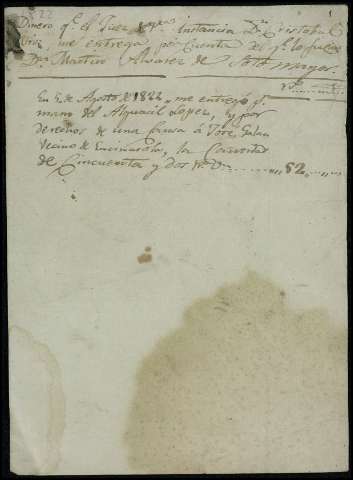 1822
Dinero q.e el Juez de p.a Instancia D.n Cristobal
me entrega por cuenta del q.e
D.n Martin Alvarez de Sotomayor.
En 2 de Agosto de 1822, me entregó p.r
mano del Alguacil Lopez, y por
derechos de una causa á José Galan
Vecino de Encinarola, la Cantidad
de Cincuenta y dos r.s v.n ............ 52 ......